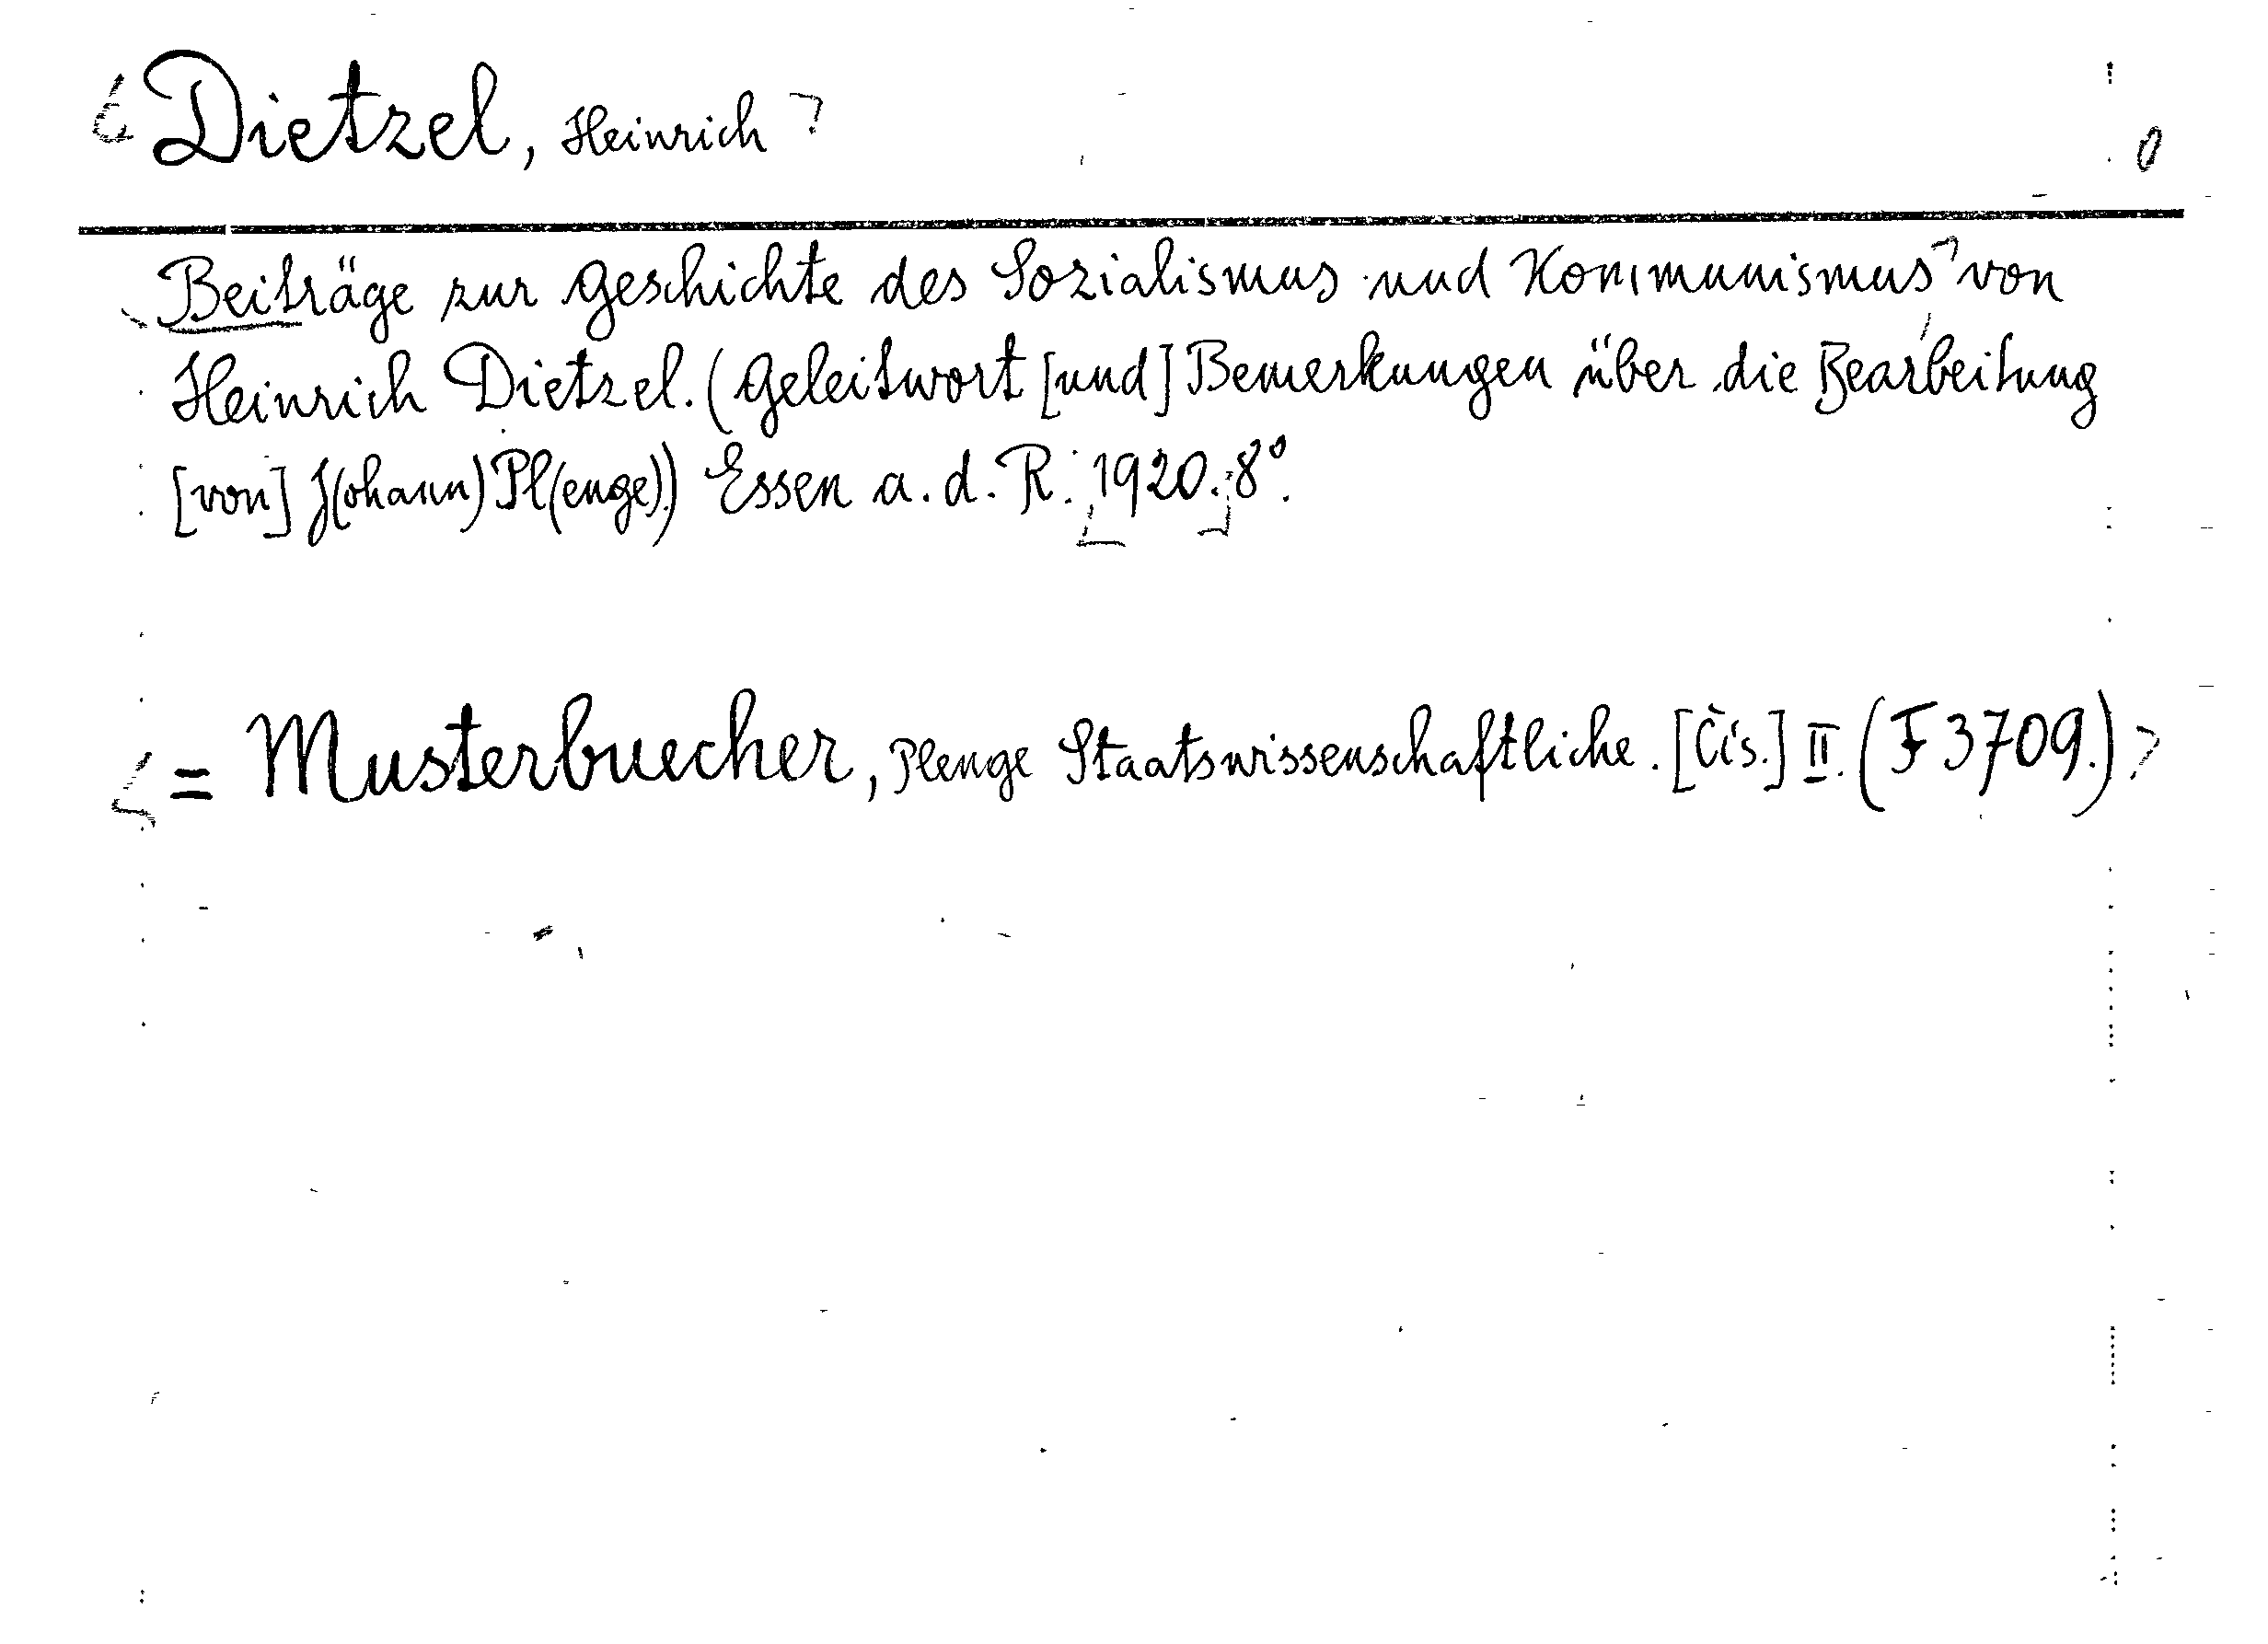 Dietzel, Heinrich
0
Beiträge zur Geschichte des Sozialismus und Kommunismus von
Heinrich Dietzel. (Geleitwort [und] Bemerkungen über die Bearbeitung
[von] J(ohann) Pl(enge).) Essen a. d. R. 1920. 8°.
= Musterbuecher, Plenge Staatswissenschaftliche. [Čís.] II. (F 3709.)